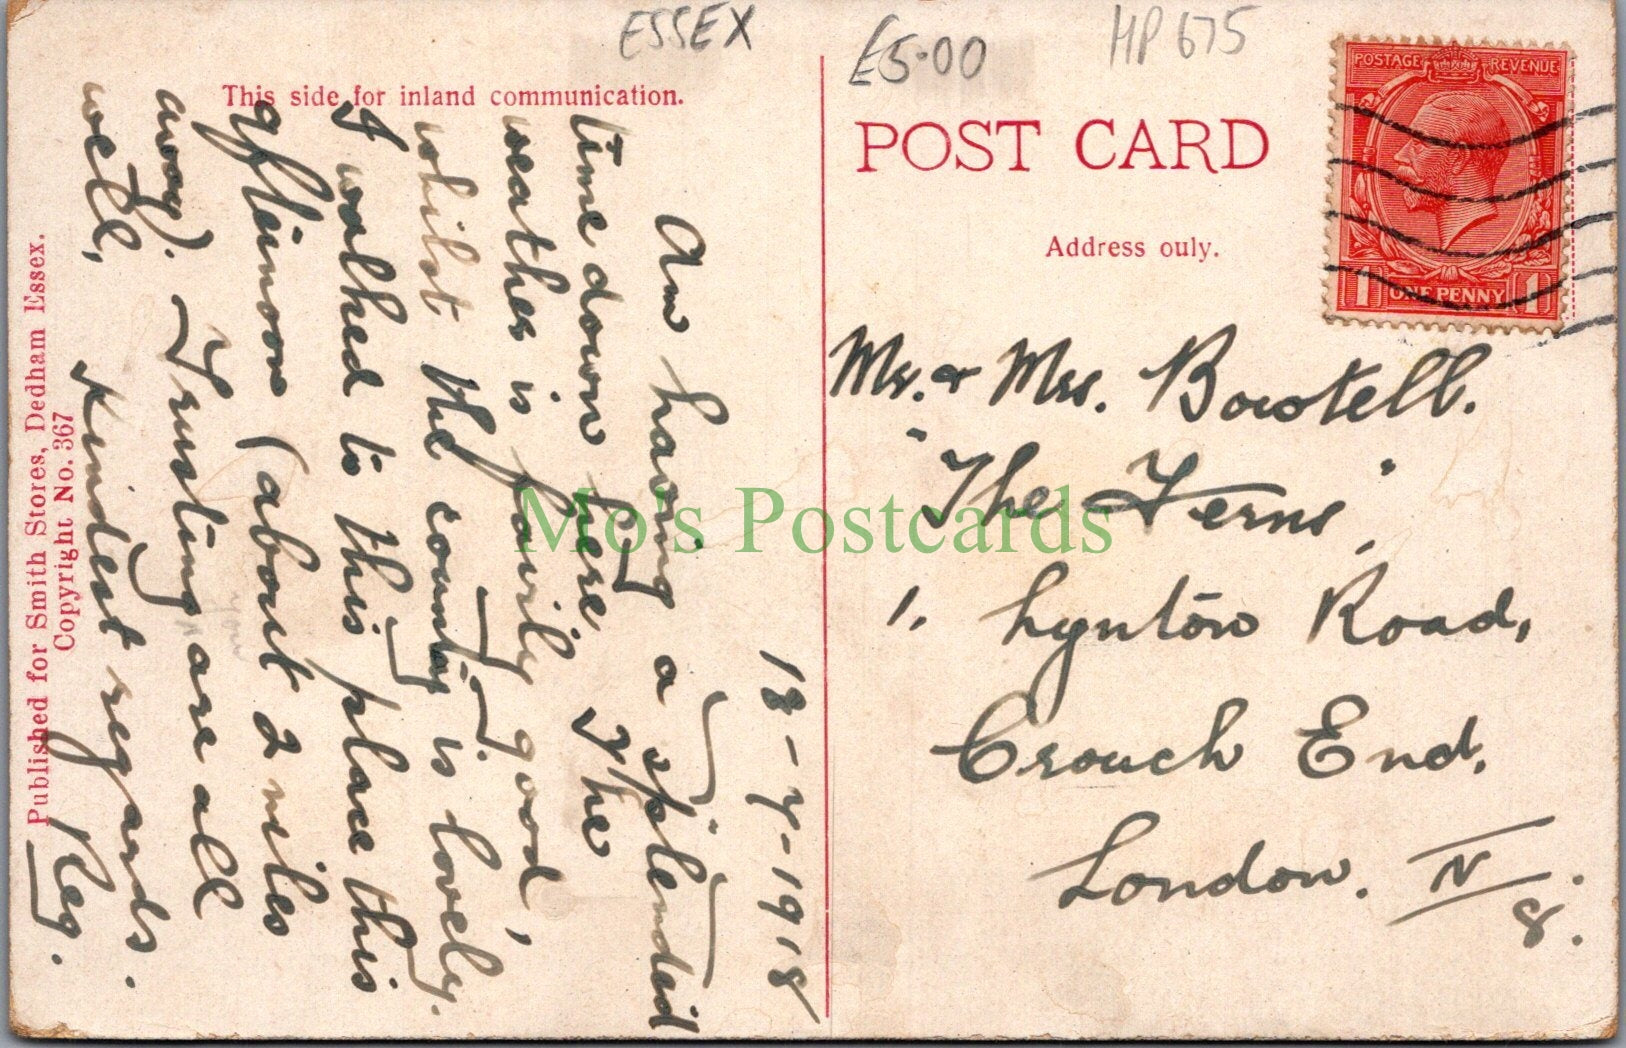 ESSEX
£5.00
HP 675
This side for inland communication.
POST CARD
Address ouly.
POSTAGE REVENUE
1 ONE PENNY 1
18-7-1918
Am having a splendid
time down here. The
weather is fairly good,
whilst the country is lovely.
I walked to this place this
afternoon (about 2 miles
away). Trusting are all
you
well,
Kindest regards.
Reg.
Mr. & Mrs. Bowtell.
"The Ferns",
1, Lynton Road,
Crouch End,
London. N
8.
Published for Smith Stores, Dedham Essex.
Copyright No. 367
Mo's Postcards